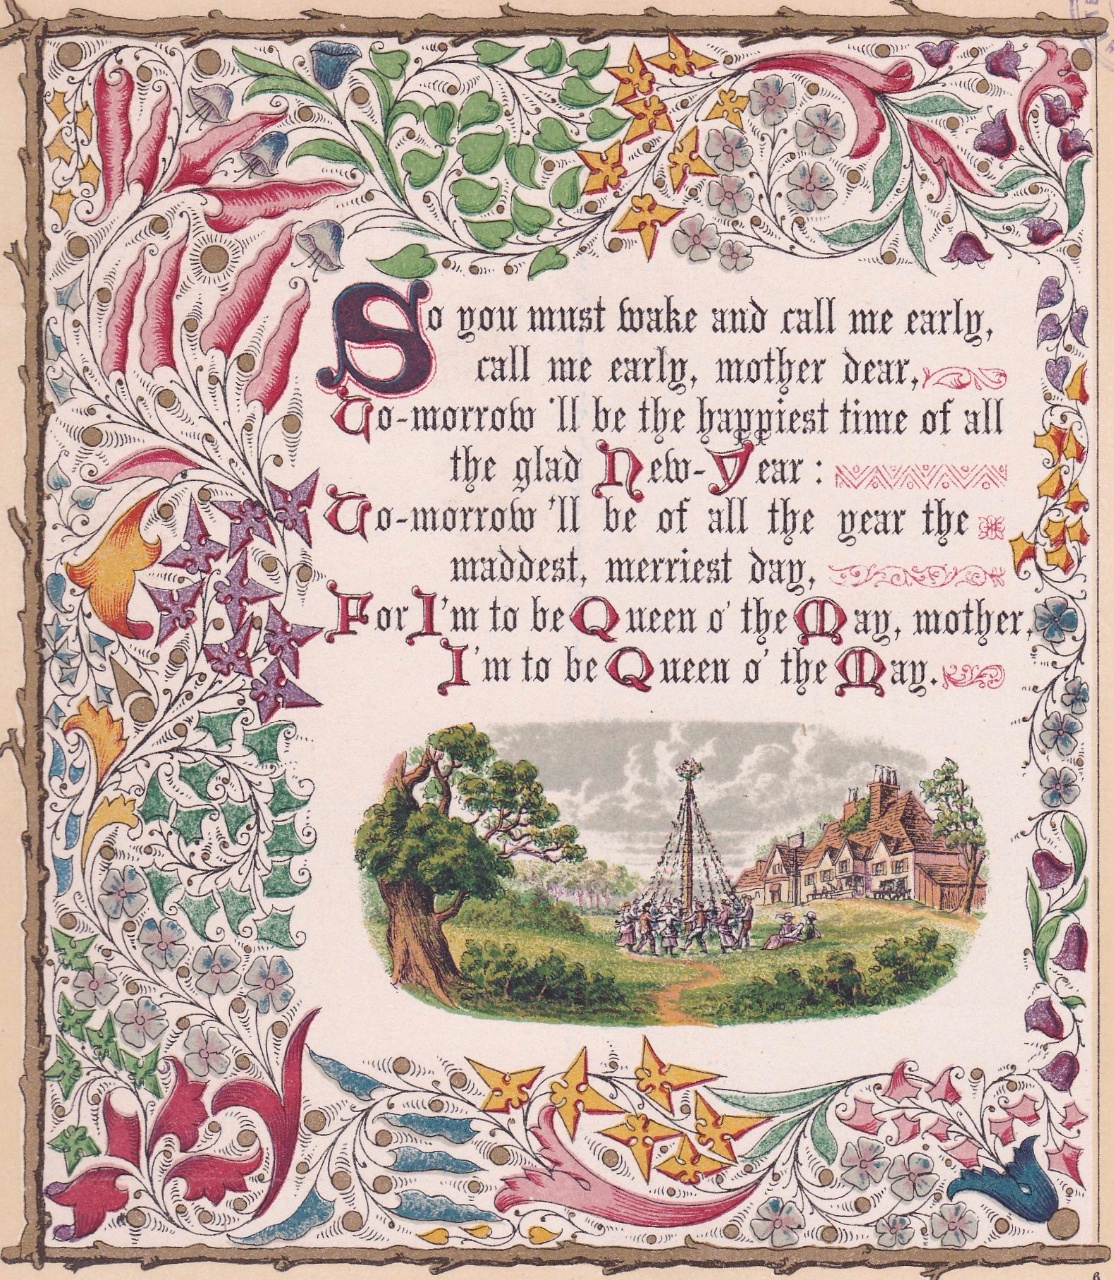 So you must wake and call me early,
call me early, mother dear,
To-morrow 'll be the happiest time of all
the glad New-Year :
To-morrow 'll be of all the year the
maddest, merriest day,
For I'm to be Queen o' the May, mother,
I'm to be Queen o' the May.
6